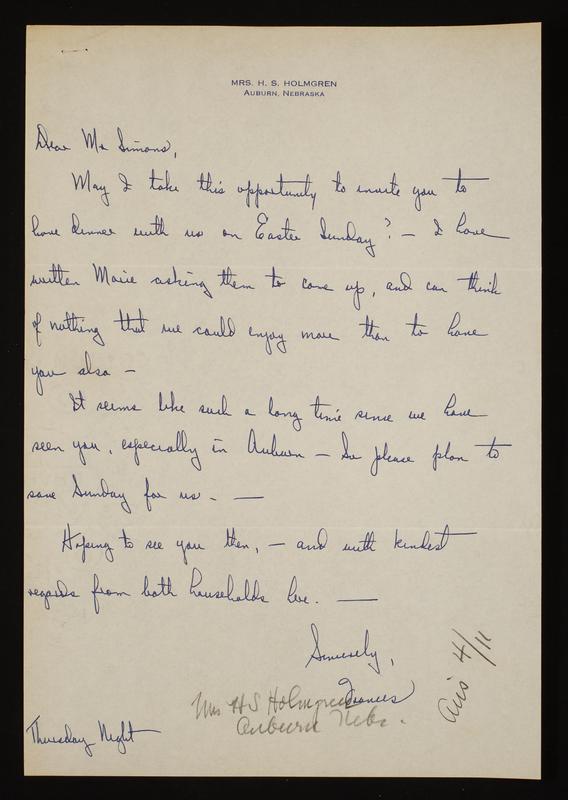 MRS. H. S. HOLMGREN
AUBURN, NEBRASKA
Dear Mr Simons,
May I take this opportunity to invite you to
have dinner with us on Easter Sunday? — I have
written Marie asking them to come up, and can think
of nothing that we could enjoy more than to have
you also —
It seems like such a long time since we have
seen you, especially in Auburn — So please plan to
save Sunday for us. —
Hoping to see you then, — and with kindest
regards from both households here. —
Sincerely,
Frances
Mrs H S Holmgren
Auburn Nebr.
Ans 4/11
Thursday Night